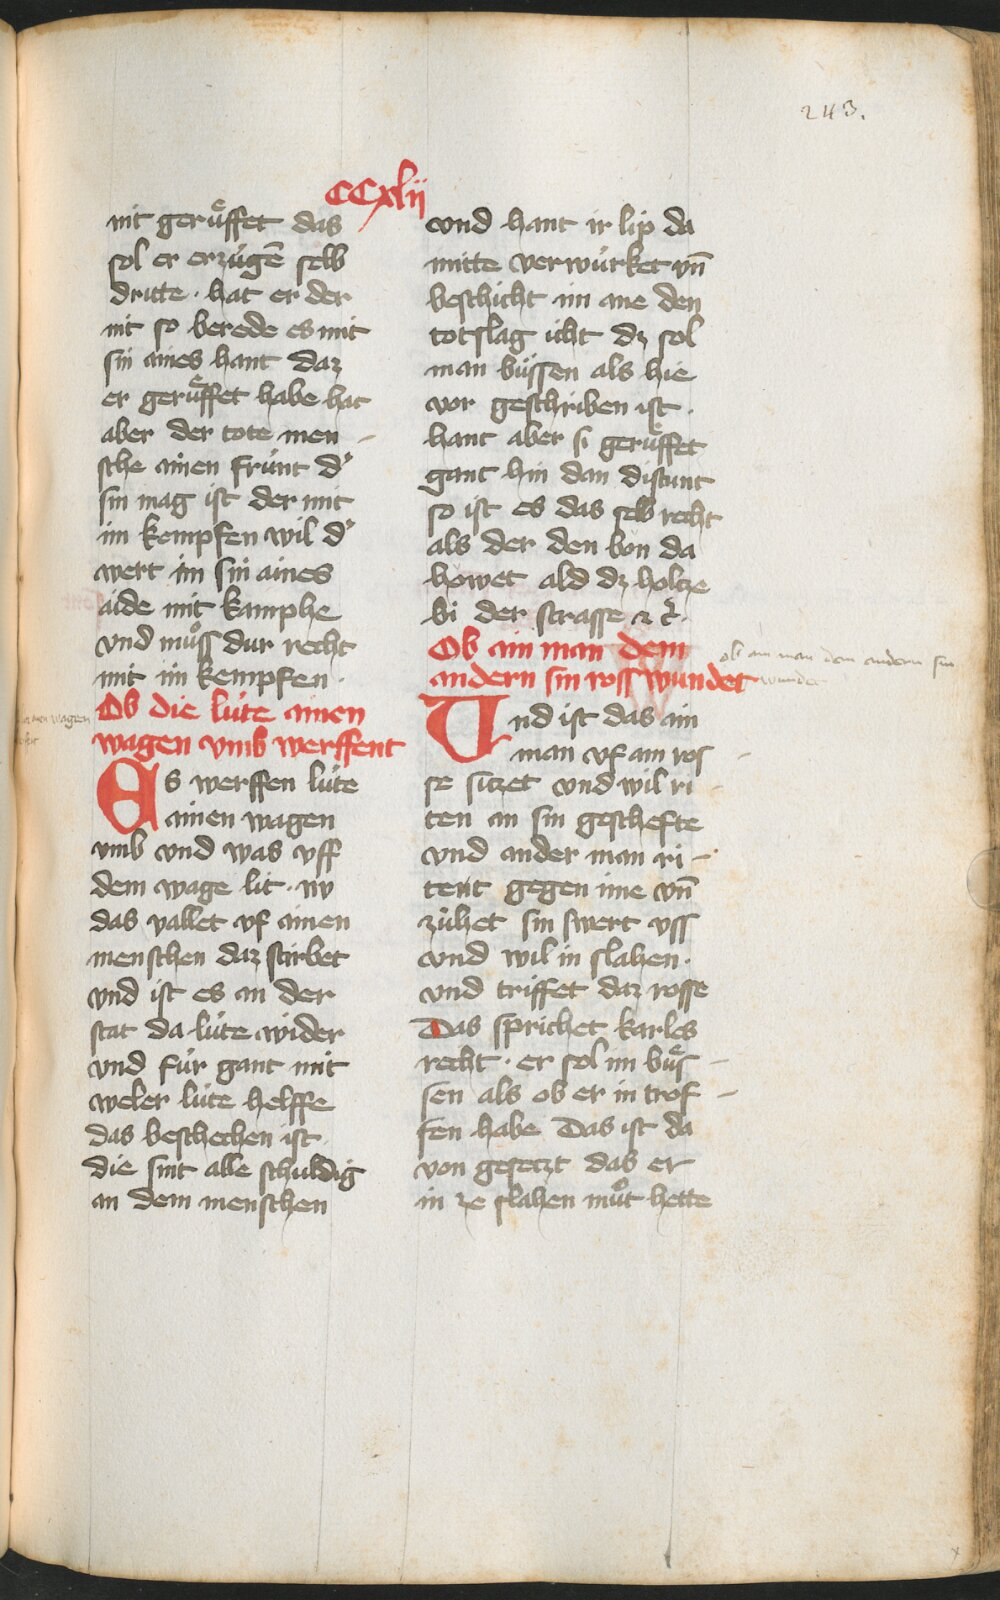 243.
CCxlii
nit gerůffet das
sol er erzúgē selb
dritte · hat er der
nit so berede es mit
sin aines hant daz
er gerůffet habe hat
aber der tote men -
sche ainen frúnt d'
sin mag ist der mit
im kempfen wil d'
wert im sin aines
aide mit kamphe
vnd můss dur recht
mit im kempfen ·
Ob die lúte ainen
wagen vmb werffent
ES werffen lúte
ainen wagen
vmb vnd was vff
dem wage lit · nv
das vallet vf ainen
menschen daz stirbet
vnd ist es an der
stat da lúte wider
vnd fúr gant mit
weler lúte helffe
das beschechen ist
die sint alle schuldig
an dem menschen
vnd hant ir lip da
mitte verwúrket vn̄
beschicht im ane den
totslag icht dz sol
man bússen als hie
vor geschriben ist ·
hant aber si gerůffet
gant hin dan distunt
so ist es das selb recht
als der den bön da
höwet ald dz holtze
bi der strasse ⁊ c̄ ·
Ob ain man dem
andern sin ross wundet
ob ain man dem andern sin
wundet
Vnd ist das ain
man vf aim ros -
se sitzet vnd wil ri -
ten an sin geschefte
vnd ander man ri -
tent gegen ime vn̄
zúhet sin swert vss
vnd wil in slahen ·
vnd triffet daz rosse
Das sprichet karles
recht · er sol im bůs -
sen als ob er in trof -
fen habe Das ist da
von gesetzt das er
in ze slahen můt hette